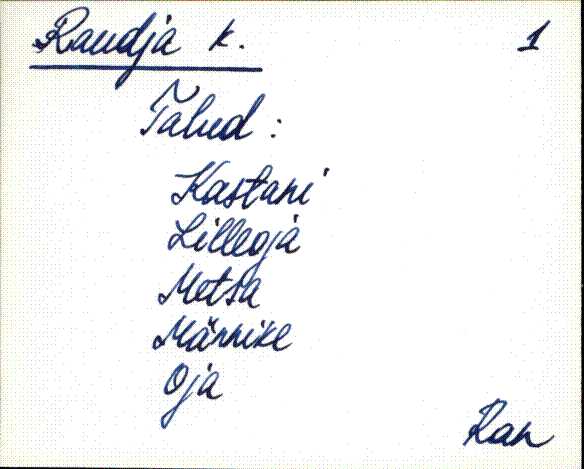 Raudja k. 1
Talud:
Kastani
Lilleoja
Metsa
Männike
Oja
Ran